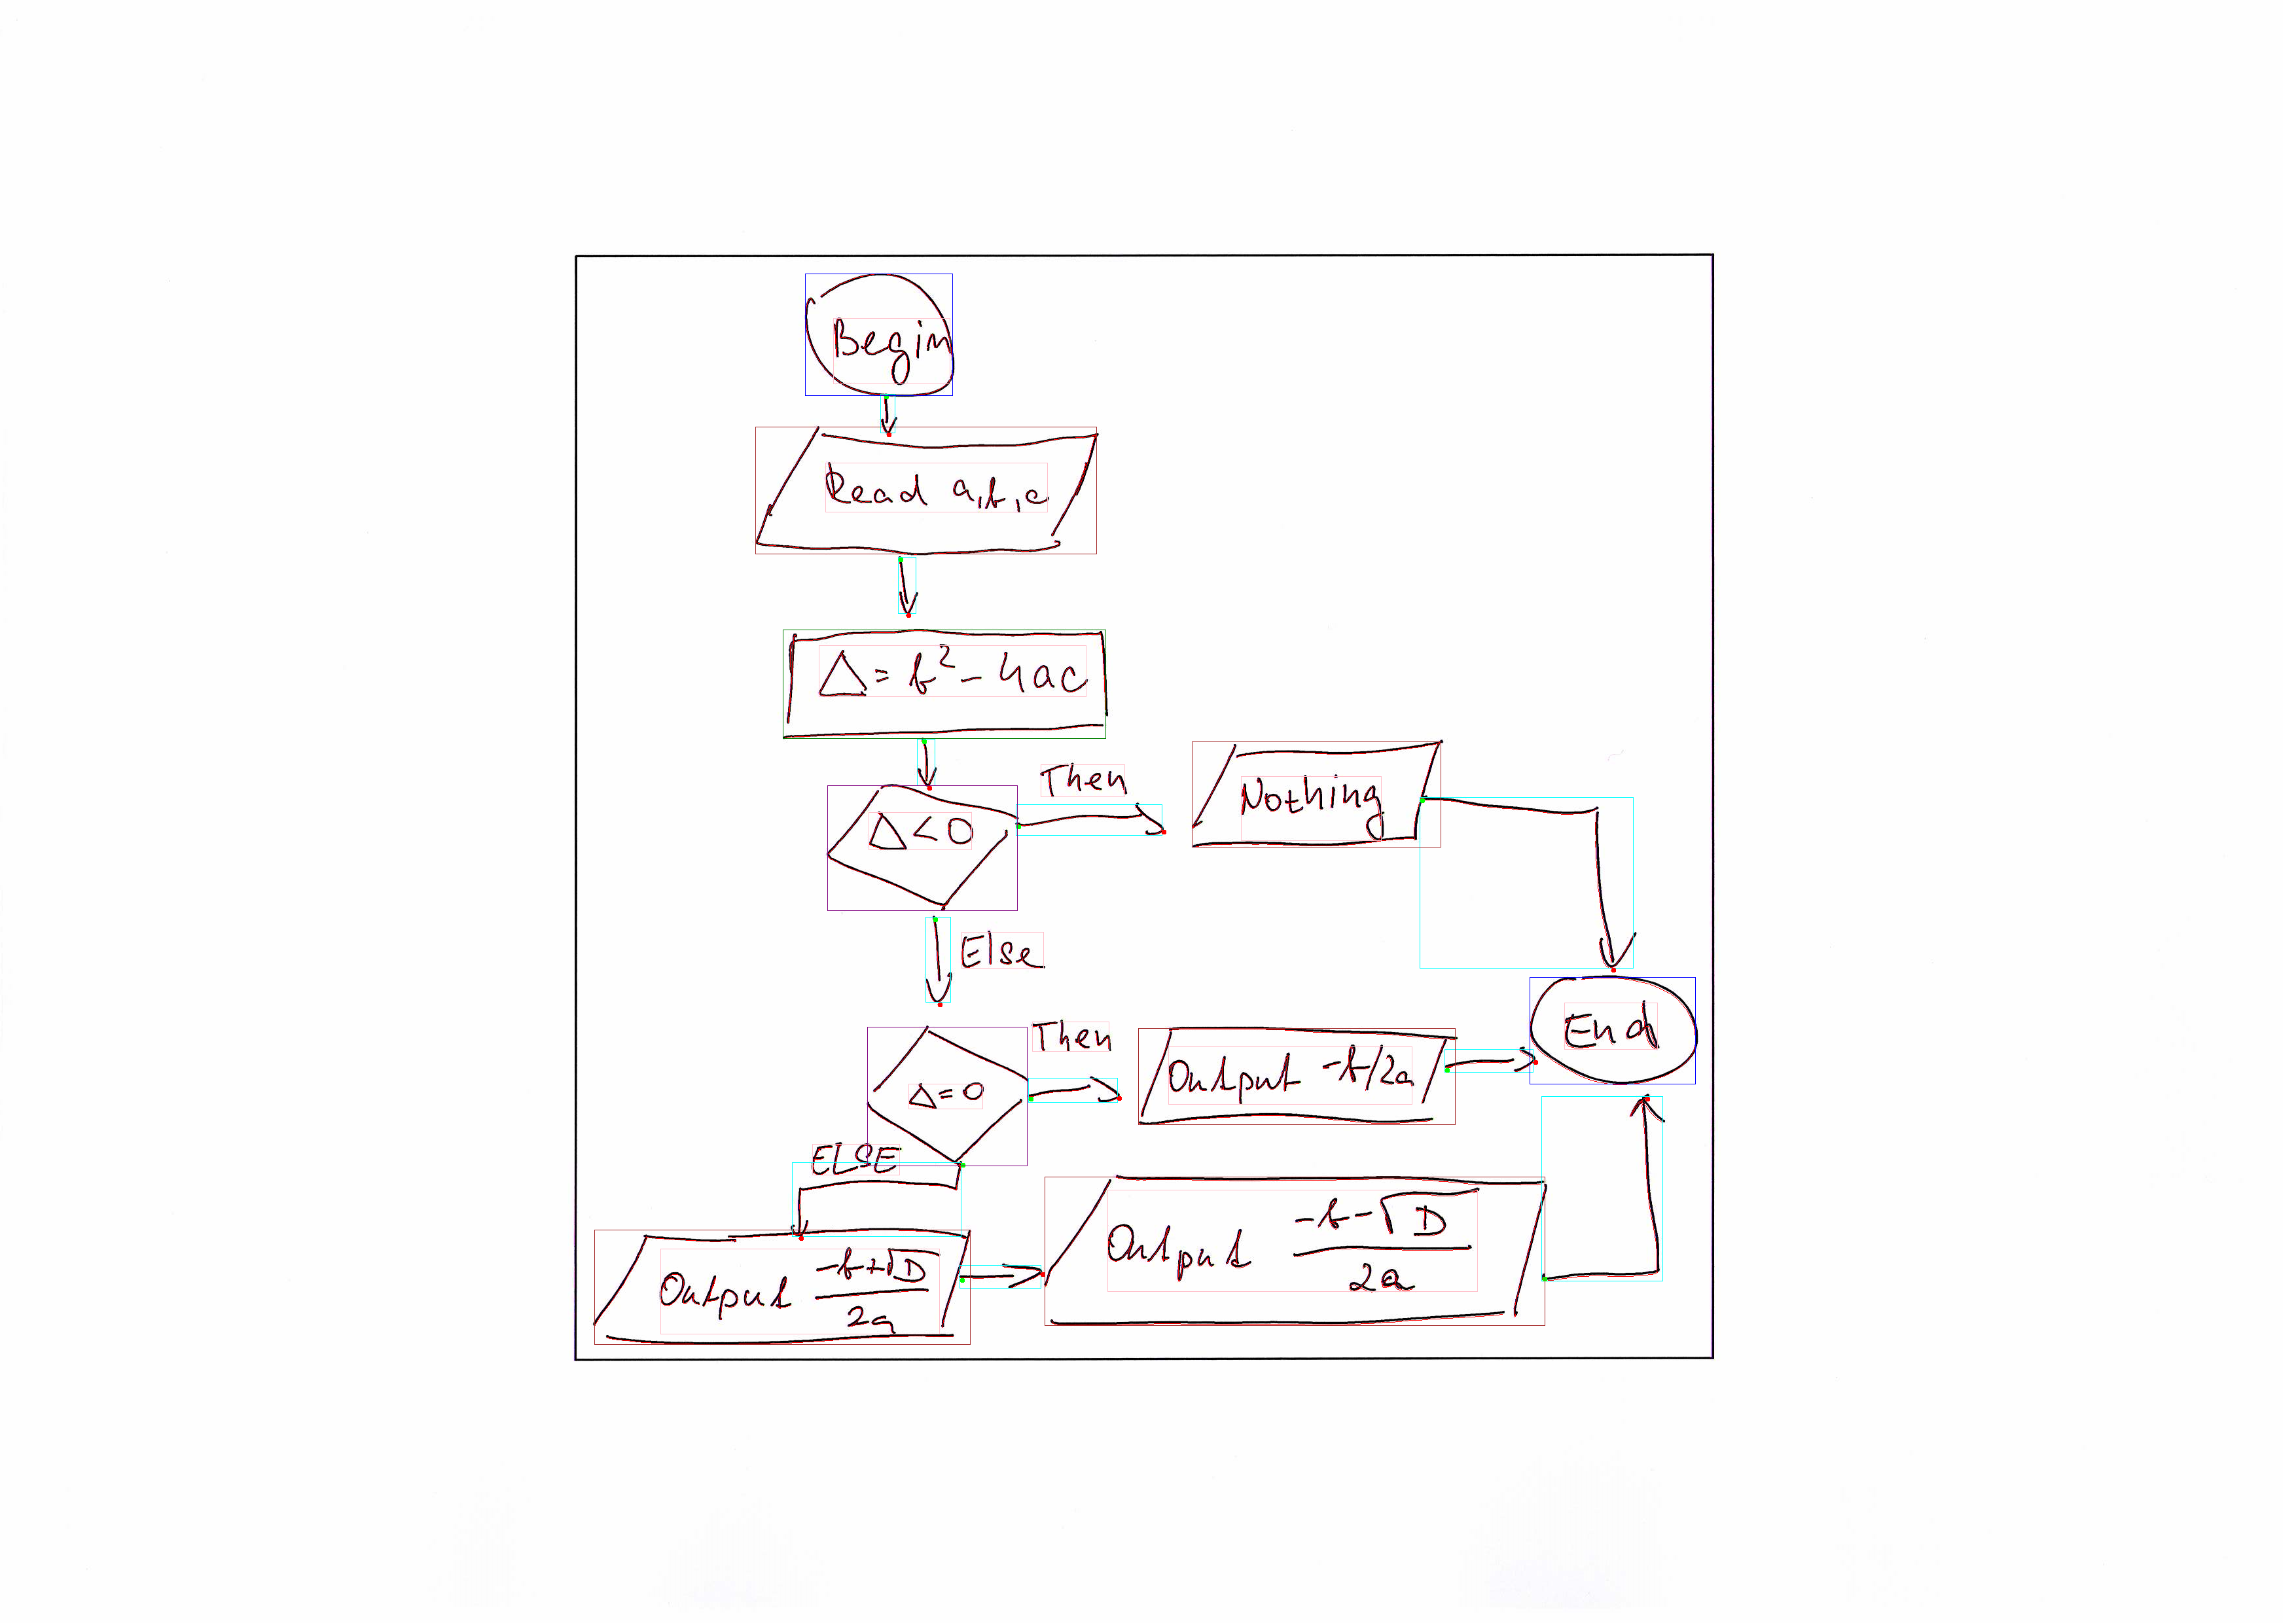 Begin
Read a,b,c
Δ = b² - 4ac
Then
Δ < 0
Nothing
Else
End
Then
Output -b/2a
Δ = 0
ELSE
Output (-b+√D)/2a
Output (-b-√D)/2a